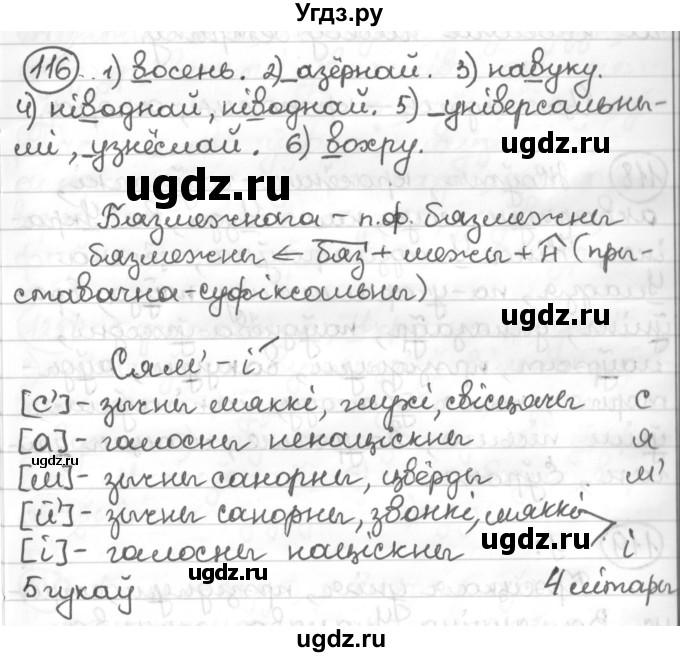 Угдз.ру
116. 1) восень. 2) _азёрнай. 3) навуку.
4) ніводнай, ніводнай. 5) _універсальны-
мі, _узнёслай. 6) вохру.
ugdz.ru
ugdz.ru
Бязмежнага – п.ф. бязмежны
бязмежны ← бяз + межы + н (пры-
ставачна-суфіксальны)
ugdz.ru
Сям' – і
[с'] – зычны мяккі, глухі, свісцячы с
[а] – галосны ненаціскны я
ugdz.ru
ugdz.ru
[м] – зычны санорны, цвёрды м'
[й'] – зычны санорны, звонкі, мяккі
[і] – галосны націскны і
ugdz.ru
ugdz.ru
5 гукаў 4 літары
ugdz.ru